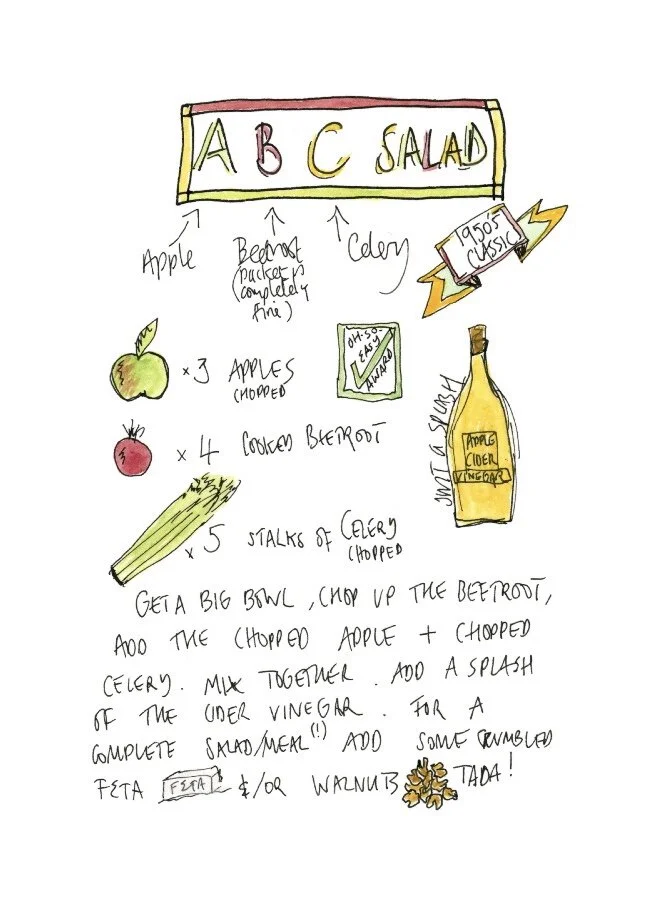 ABC SALAD
Apple
Beetroot
(packet is
completely
fine)
Celery
1950'S
CLASSIC
x 3 APPLES
CHOPPED
OH-SO-
EASY
AWARD
x 4 COOKED BEETROOT
JUST A SPLASH
APPLE
CIDER
VINEGAR
x 5 STALKS OF CELERY
CHOPPED
GET A BIG BOWL, CHOP UP THE BEETROOT,
ADD THE CHOPPED APPLE + CHOPPED
CELERY. MIX TOGETHER. ADD A SPLASH
OF THE CIDER VINEGAR. FOR A
COMPLETE SALAD/MEAL(!) ADD SOME CRUMBLED
FETA FETA &/OR WALNUTS TADA!